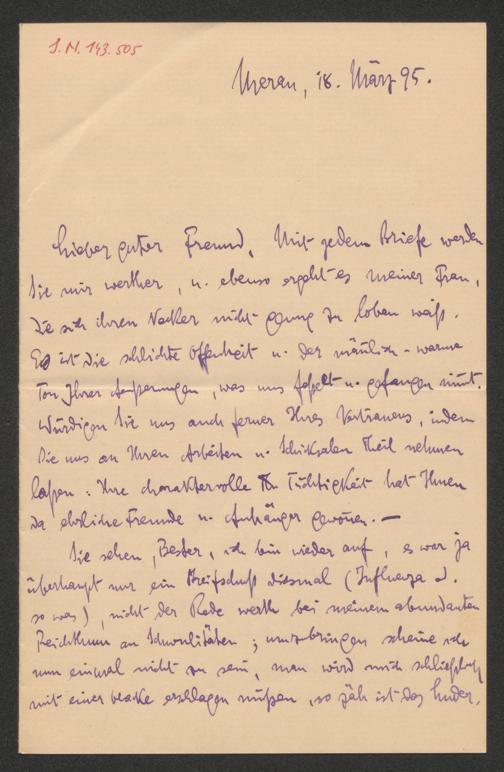 I.N. 143.505
Meran, 18. März 95.
Lieber guter Freund, Mit jedem Briefe werden
Sie mir werther, u. ebenso ergeht es meiner Frau,
die sich ihren Necker nicht genug zu loben weiß.
Es ist die schlichte Offenheit u. der männlich-warme
Ton Ihrer Äußerungen, was uns fesselt u. gefangen nimmt.
Würdigen Sie uns auch ferner Ihres Vertrauens, indem
Sie uns an Ihren Arbeiten u. Schicksalen Theil nehmen
laßen: Ihre charaktervolle Tüchtigkeit hat Ihnen
da ehrliche Freunde u. Anhänger gewonnen. —
Sie sehen, Bester, ich bin wieder auf, es war ja
überhaupt nur ein Streifschuß diesmal (Influenza od.
so was), nicht der Rede werth bei meinem abundanten
Reichthum an Schwulitäten; umzubringen scheine ich
nun einmal nicht zu sein, man wird mich schließlich
mit einer Hacke erschlagen müßen, so zäh ist das Luder.